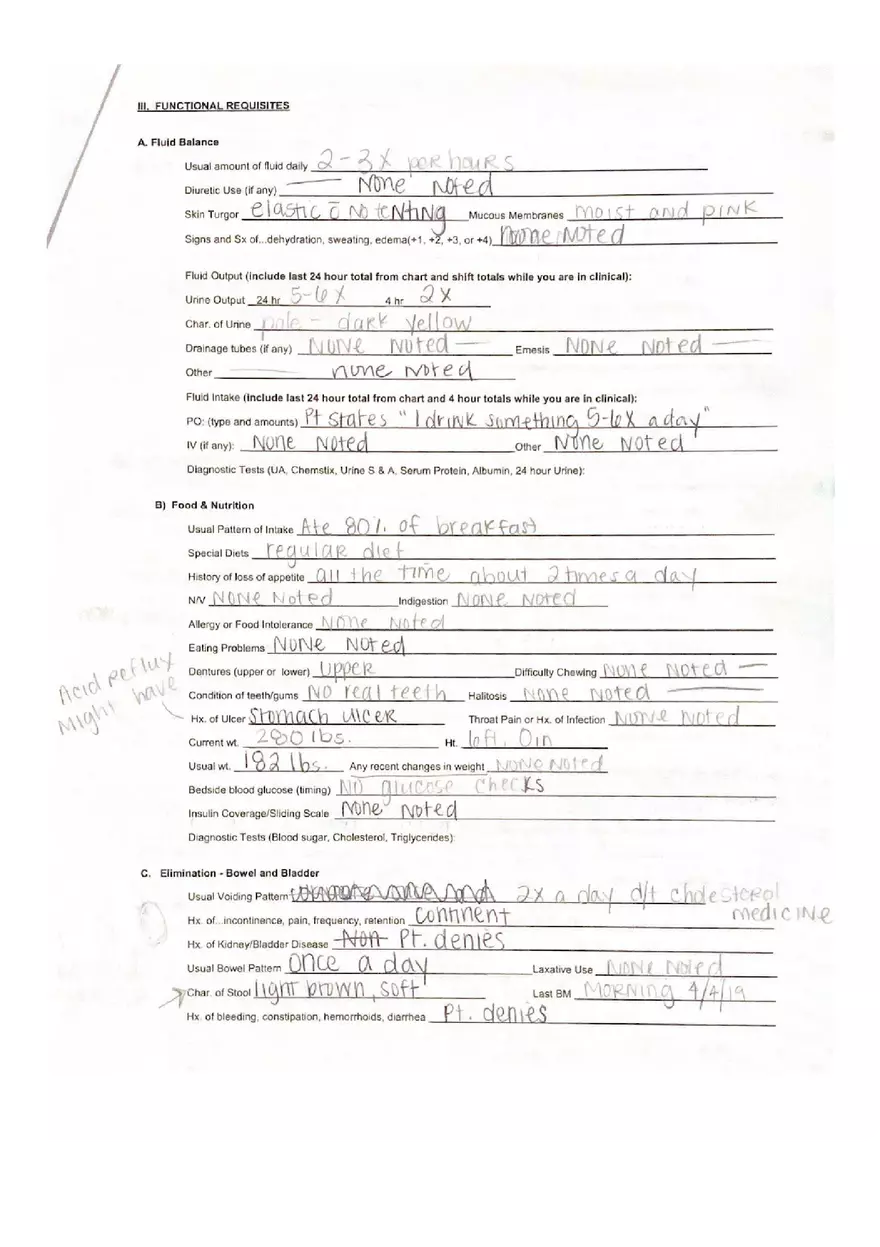 III. FUNCTIONAL REQUISITES
A. Fluid Balance
Usual amount of fluid daily 2-3X per hours
Diuretic Use (if any) None Noted
Skin Turgor elastic c̄ no tenting Mucous Membranes moist and pink
Signs and Sx of...dehydration, sweating, edema(+1, +2, +3, or +4) None Noted
Fluid Output (include last 24 hour total from chart and shift totals while you are in clinical):
Urine Output 24 hr 5-6X 4 hr 2X
Char. of Urine pale - dark yellow
Drainage tubes (if any) None Noted Emesis None Noted
Other none Noted
Fluid Intake (include last 24 hour total from chart and 4 hour totals while you are in clinical):
PO: (type and amounts) Pt states "I drink something 5-6X a day"
IV (if any): None Noted Other None Noted
Diagnostic Tests (UA, Chemstix, Urine S & A, Serum Protein, Albumin, 24 hour Urine):
B) Food & Nutrition
Usual Pattern of Intake Ate 80% of breakfast
Special Diets regular diet
History of loss of appetite all the time about 2 times a day
N/V None Noted Indigestion None Noted
Allergy or Food Intolerance None Noted
Eating Problems None Noted
Dentures (upper or lower) Upper Difficulty Chewing None Noted
Acid reflux
Might have
Condition of teeth/gums No real teeth Halitosis None Noted
Hx. of Ulcer Stomach ulcer Throat Pain or Hx. of Infection None Noted
Current wt. 280 lbs. Ht. 6ft. 0in
Usual wt. 182 lbs. Any recent changes in weight None Noted
Bedside blood glucose (timing) No glucose checks
Insulin Coverage/Sliding Scale None Noted
Diagnostic Tests (Blood sugar, Cholesterol, Triglycerides):
C. Elimination - Bowel and Bladder
Usual Voiding Pattern 2x a day d/t cholesterol
medicine
Hx. of...incontinence, pain, frequency, retention continent
Hx. of Kidney/Bladder Disease Non Pt. denies
Usual Bowel Pattern Once a day Laxative Use None Noted
Char. of Stool light brown, soft Last BM Morning 4/4/19
Hx. of bleeding, constipation, hemorrhoids, diarrhea Pt. denies